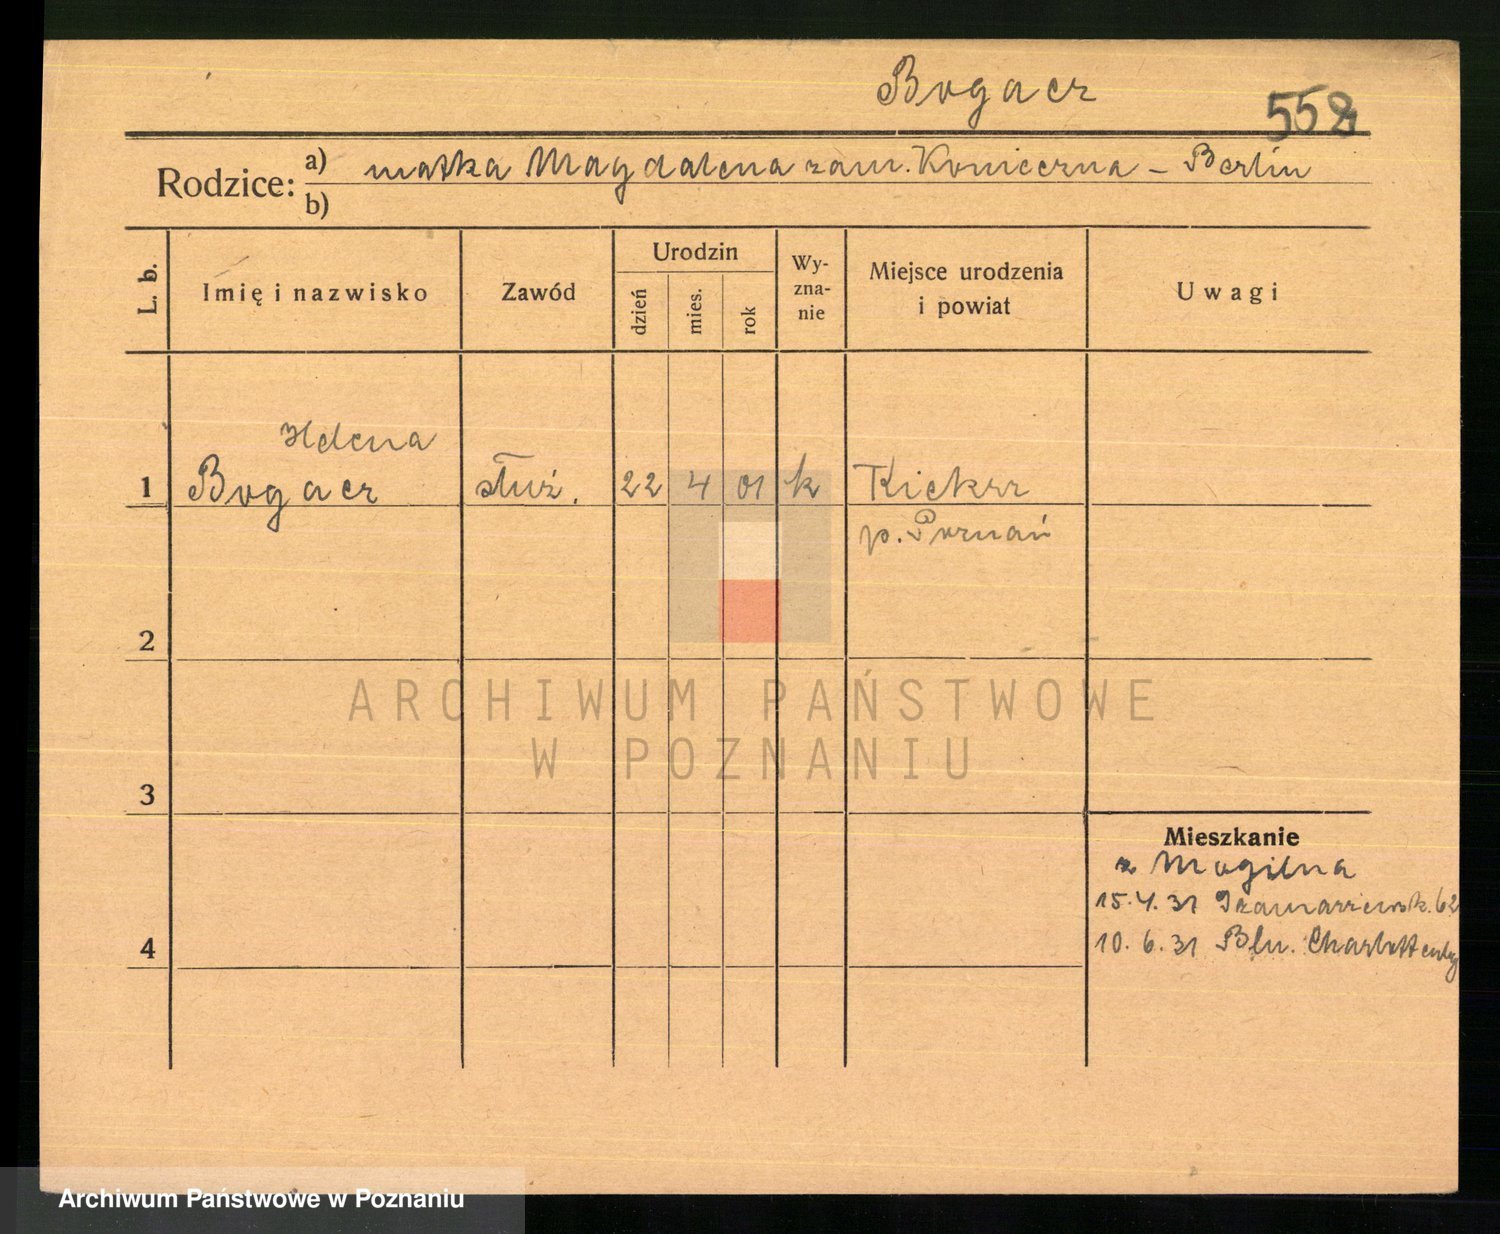 Bogacz
552
Rodzice: a) matka Magdalena zam. Konieczna – Berlin
b)
L. b.
Imię i nazwisko
Zawód
Urodzin
dzień
mies.
rok
Wy-
zna-
nie
Miejsce urodzenia
i powiat
Uwagi
Helena
1 Bogacz służ. 22 4 01 k Kiekrz
p. Poznań
2
ARCHIWUM PAŃSTWOWE
W POZNANIU
3
Mieszkanie
z Mogilna
15.4.31 62
4
10.6.31 Bln. Charlottenbg
Archiwum Państwowe w Poznaniu